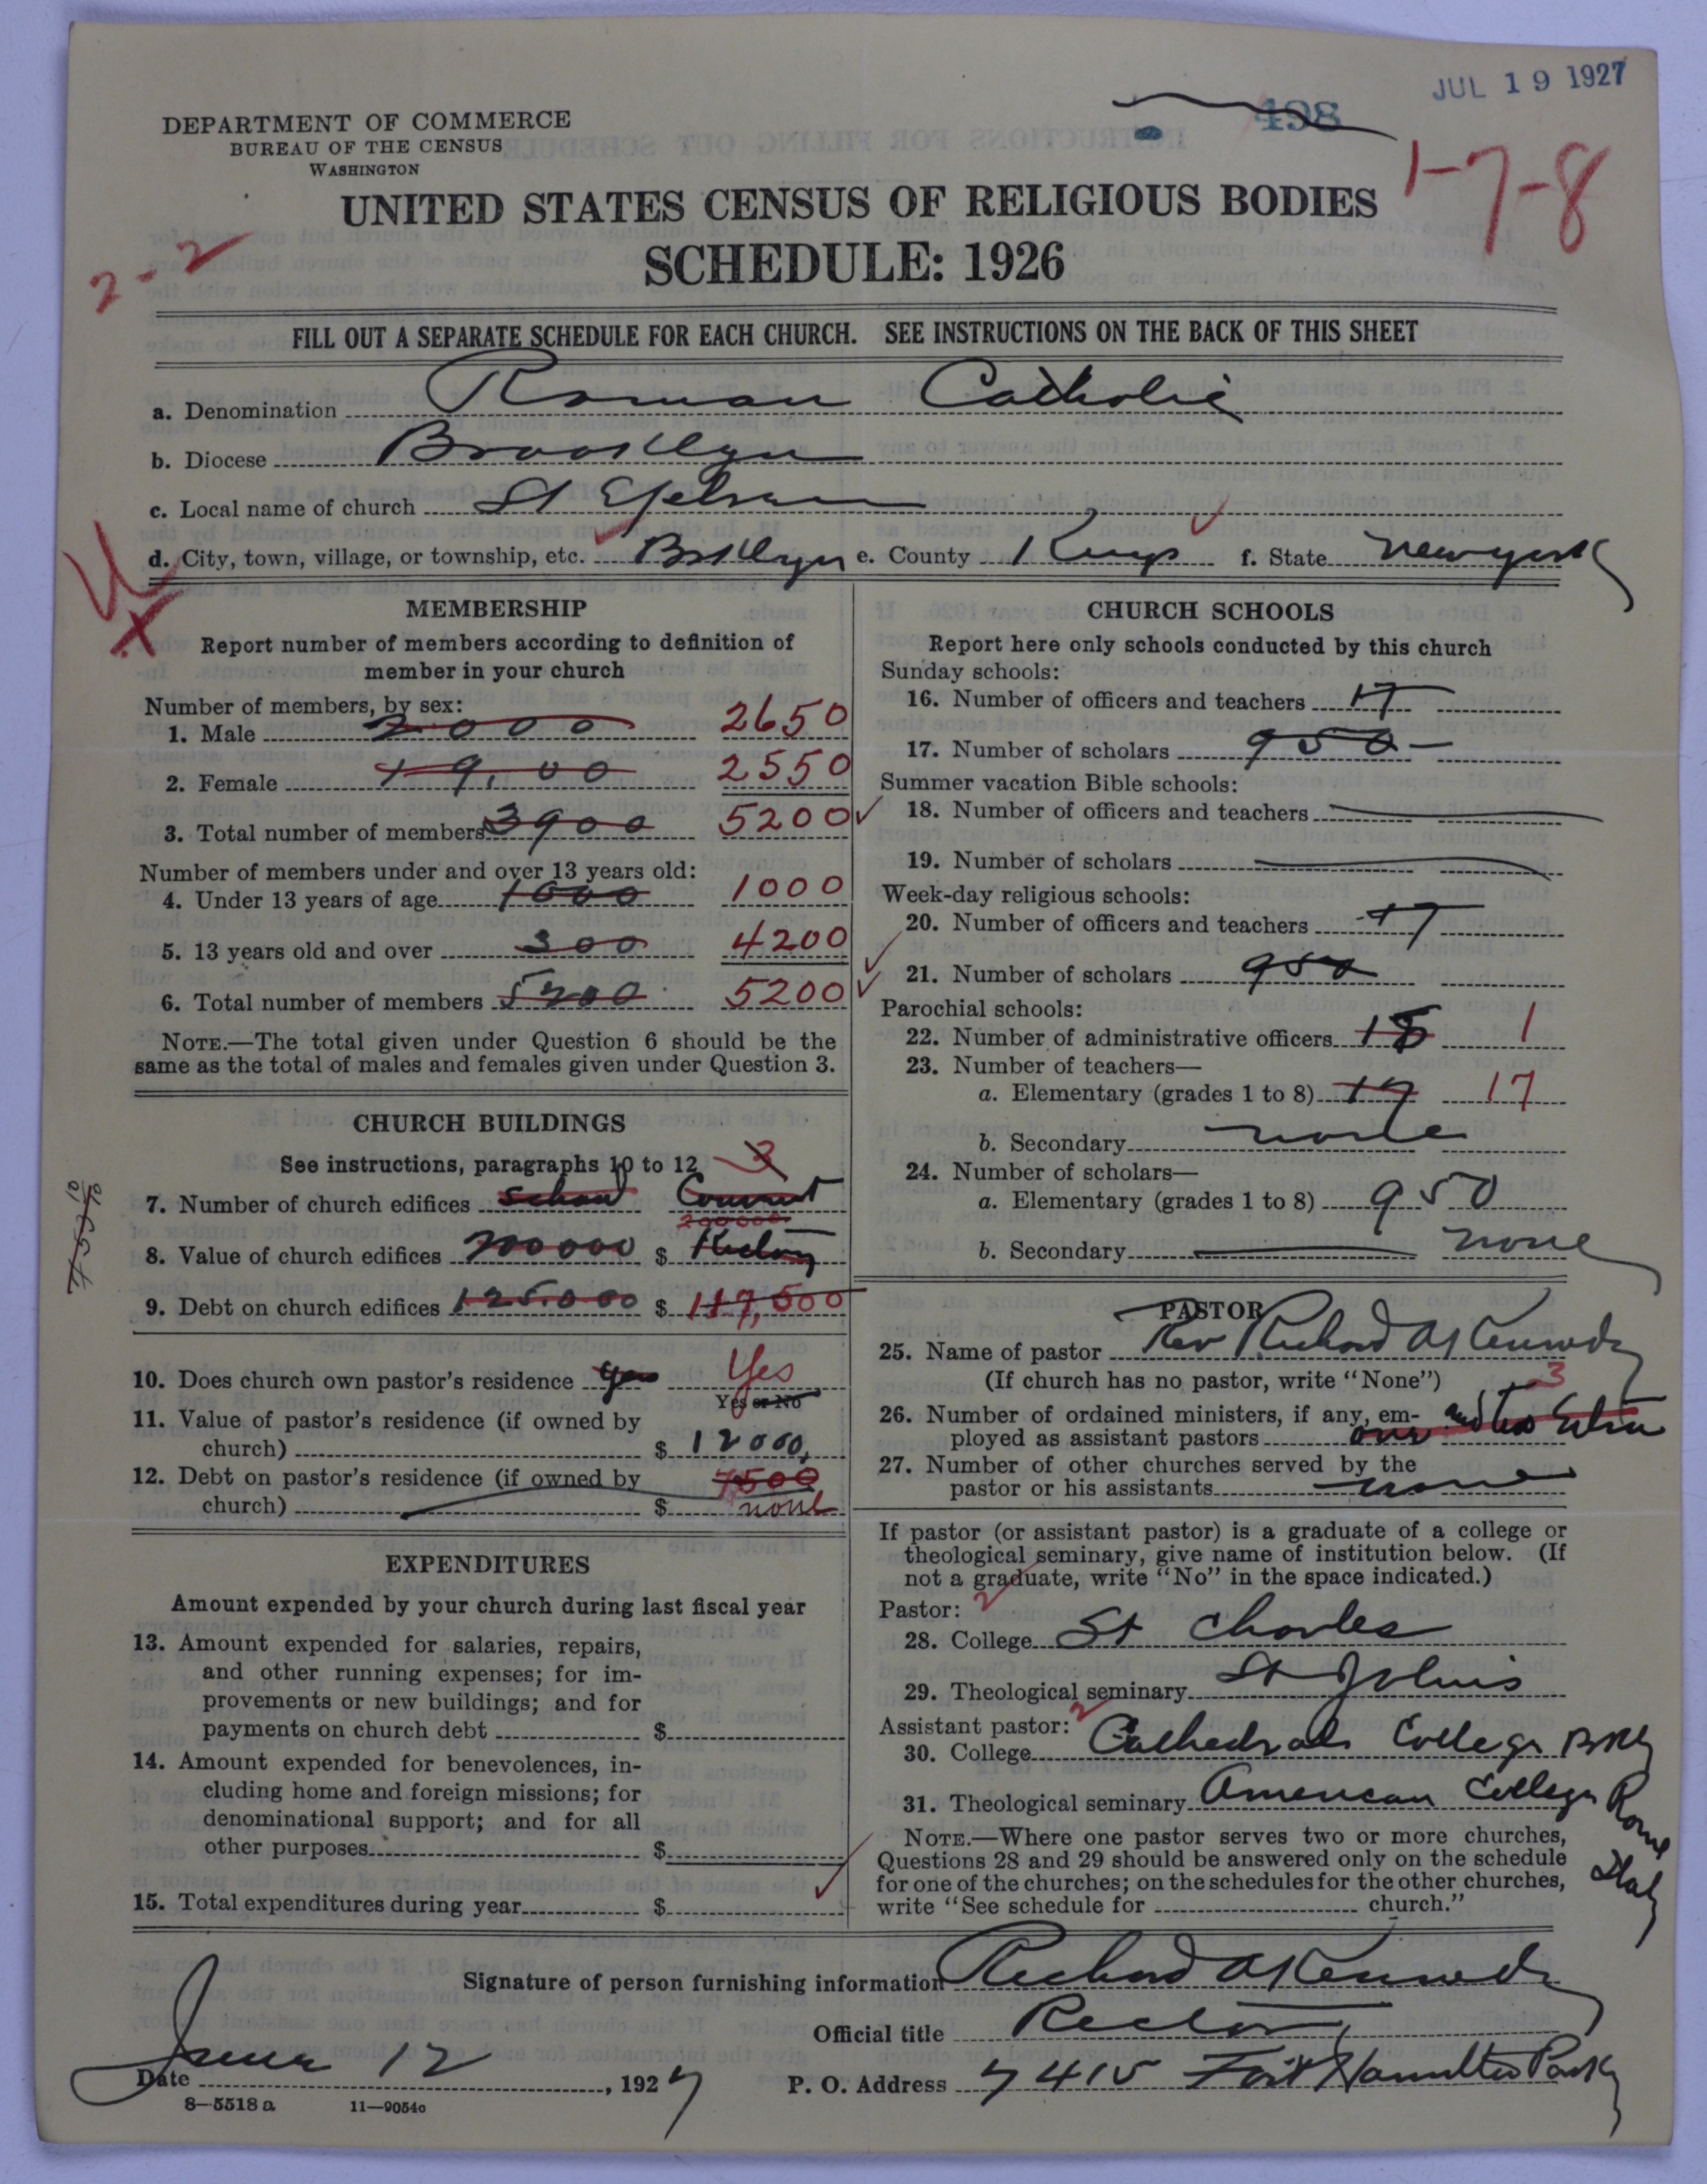 JUL 19 1927
498
DEPARTMENT OF COMMERCE
BUREAU OF THE CENSUS
WASHINGTON
1-7-8
UNITED STATES CENSUS OF RELIGIOUS BODIES
SCHEDULE: 1926
2-2
FILL OUT A SEPARATE SCHEDULE FOR EACH CHURCH. SEE INSTRUCTIONS ON THE BACK OF THIS SHEET
a. Denomination Roman Catholic
b. Diocese Brooklyn
c. Local name of church St
d. City, town, village, or township, etc. Bklyn e. County Kings f. State New York
MEMBERSHIP
Report number of members according to definition of
member in your church
Number of members, by sex:
1. Male 2000 2650
2. Female 19,00 2550
3. Total number of members 3900 5200
Number of members under and over 13 years old:
4. Under 13 years of age 1000 1000
5. 13 years old and over 300 4200
6. Total number of members 5200 5200
NOTE.—The total given under Question 6 should be the
same as the total of males and females given under Question 3.
CHURCH BUILDINGS
See instructions, paragraphs 10 to 12 3
7. Number of church edifices School Convent
200000
8. Value of church edifices 200000 $ Rectory
9. Debt on church edifices 125.000 $ 117,500
10. Does church own pastor's residence yes Yes
Yes or No
11. Value of pastor's residence (if owned by
church) $ 12000,
12. Debt on pastor's residence (if owned by 7500
church) $ none
EXPENDITURES
Amount expended by your church during last fiscal year
13. Amount expended for salaries, repairs,
and other running expenses; for im-
provements or new buildings; and for
payments on church debt $
14. Amount expended for benevolences, in-
cluding home and foreign missions; for
denominational support; and for all
other purposes $
15. Total expenditures during year $
CHURCH SCHOOLS
Report here only schools conducted by this church
Sunday schools:
16. Number of officers and teachers 17
17. Number of scholars 950 —
Summer vacation Bible schools:
18. Number of officers and teachers
19. Number of scholars
Week-day religious schools:
20. Number of officers and teachers 17
21. Number of scholars 950
Parochial schools:
22. Number of administrative officers 18 1
23. Number of teachers—
a. Elementary (grades 1 to 8) 17 17
b. Secondary none
24. Number of scholars—
a. Elementary (grades 1 to 8) 950
b. Secondary none
PASTOR
25. Name of pastor Rev Richard A Kennedy
(If church has no pastor, write "None") 3
26. Number of ordained ministers, if any, em- and two Extra
ployed as assistant pastors one
27. Number of other churches served by the
pastor or his assistants none
If pastor (or assistant pastor) is a graduate of a college or
theological seminary, give name of institution below. (If
not a graduate, write "No" in the space indicated.)
Pastor: 2
28. College St Charles
29. Theological seminary St Johns
Assistant pastor: 2
30. College Cathedral College Bkly
31. Theological seminary American College Rome Italy
NOTE.—Where one pastor serves two or more churches,
Questions 28 and 29 should be answered only on the schedule
for one of the churches; on the schedules for the other churches,
write "See schedule for church."
Signature of person furnishing information Richard A Kennedy
Official title Rector
Date June 12, 1927 P. O. Address 7415 Fort Hamilton Parky
8—5518 a 11—9054c